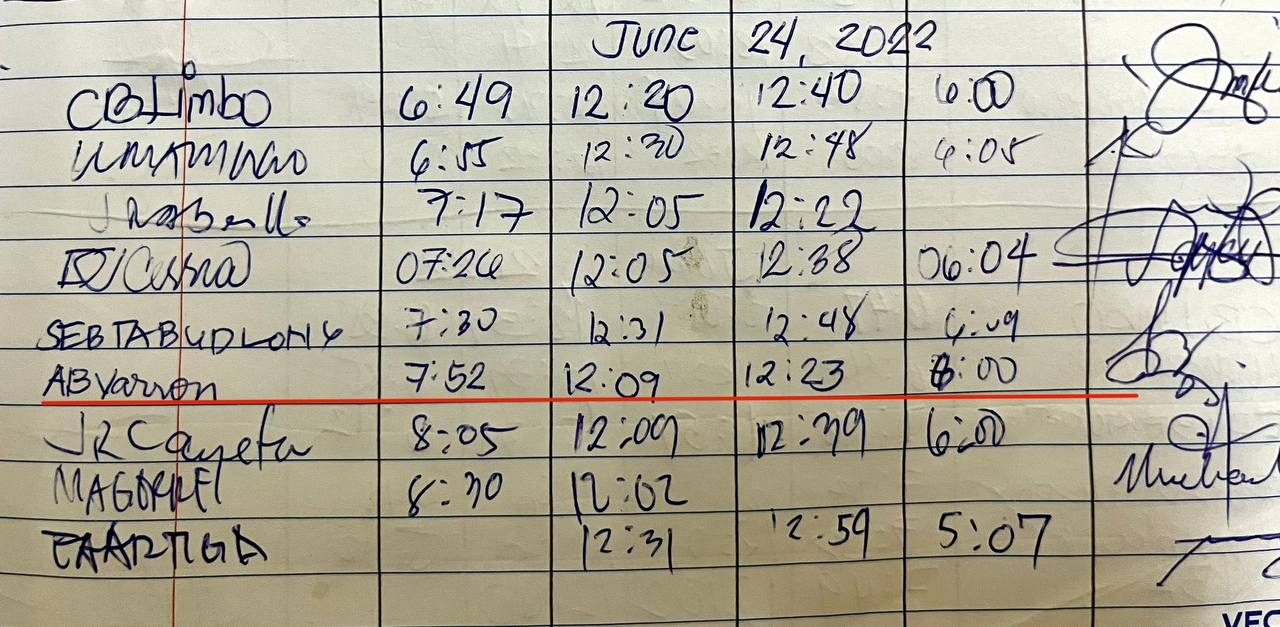 June 24, 2022
CBLimbo 6:49 12:20 12:40 6:00
6:55 12:30 12:48 6:05
7:17 12:05 12:22
07:26 12:05 12:38 06:04
SEBTABUDLONG 7:30 12:31 12:48 6:09
AB Yarron 7:52 12:09 12:23 6:00
JR Cayetu 8:05 12:09 12:39 6:00
8:30 12:02
12:31 12:59 5:07
VEC